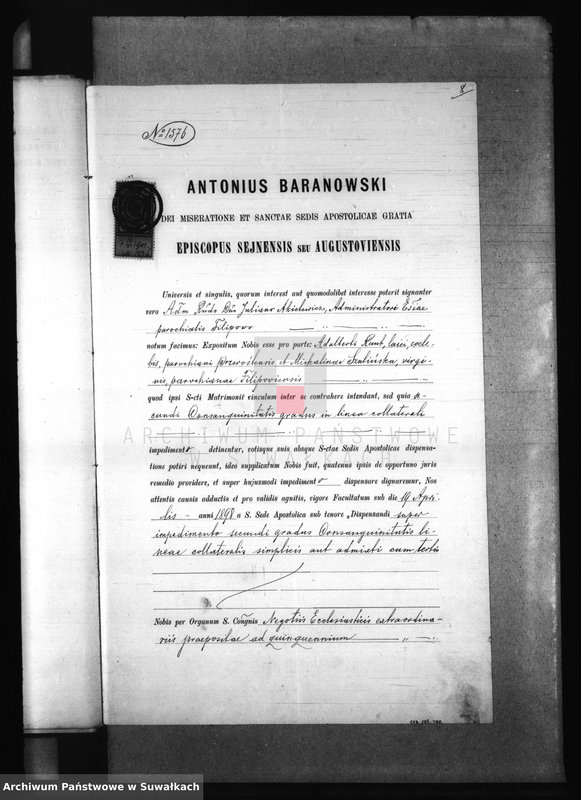 8
№ 1576
ANTONIUS BARANOWSKI
DEI MISERATIONE ET SANCTAE SEDIS APOSTOLICAE GRATIA
EPISCOPUS SEJNENSIS SEU AUGUSTOVIENSIS
Universis et singulis, quorum interest aut quomodolibet interesse poterit signanter
vero Adm Rndo Dno Juliano Akielewicz, Administratori Eccłiae
parochialis Filipovo
notum facimus: Expositum Nobis esse pro parte: Adalberti Kunt, laici, coele-
bis, parochiani przeroslensis et Michalinae Szulińska, virgi-
nis, parochianae Filipoviensis
quod ipsi S-cti Matrimonii vinculum inter se contrahere intendant, sed quia se-
cundi Consanguinitatis gradus in linea collaterali
ARCHIWUM PAŃSTWOWE
W SUWAŁKACH
impedimento detinentur, votisque suis absque S-ctae Sedis Apostolicae dispensa-
tione potiri nequeunt, ideo supplicatum Nobis fuit, quatenus ipsis de opportuno juris
remedio providere, et super hujusmodi impedimento dispensare dignaremur, Nos
attentis causis adductis et pro validis agnitis, vigore Facultatum sub die 19 Apri-
lis - anni 1898 a S. Sede Apostolica sub tenore „Dispensandi super
impedimento secundi gradus Consanguinitatis li-
neae collateralis simplicis aut admixti cum tertio
Nobis per Organum S. Congnis Negotiis Ecclesiasticis extraordina-
riis praepositae ad quinquennium
Archiwum Państwowe w Suwałkach